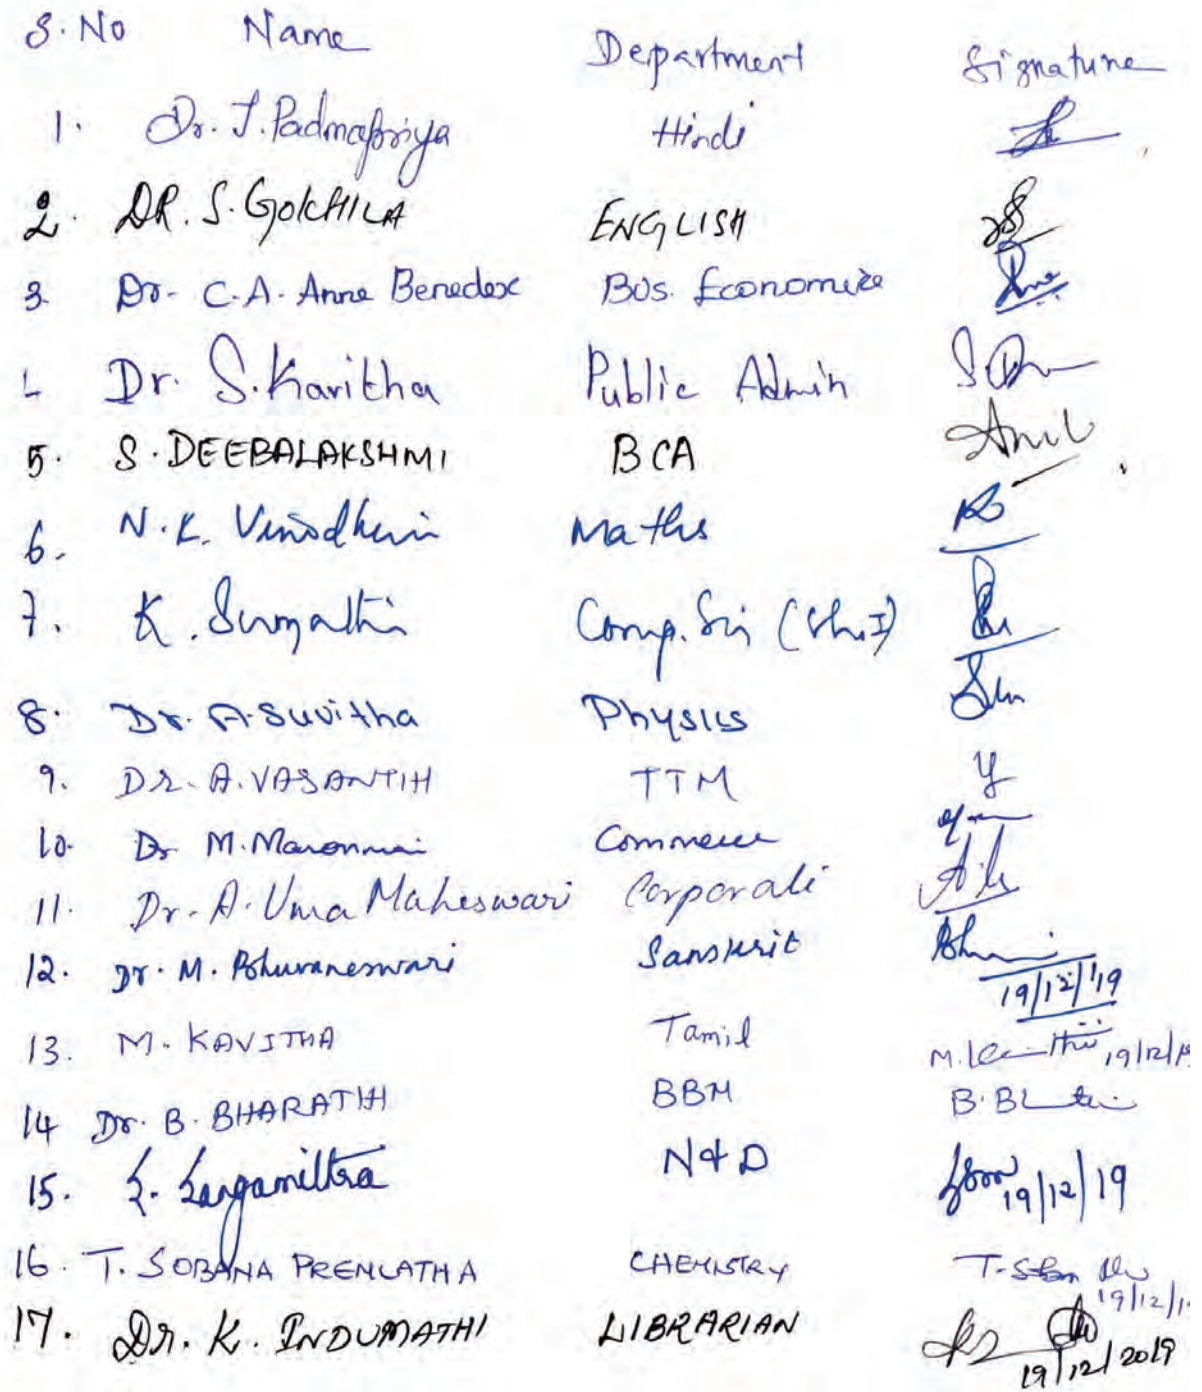 S.No Name Department Signature
1. Dr. J. Padmapriya Hindi
2. DR. S. GOKHILA ENGLISH
3. Dr. C.A. Anne Benedex Bus. Economics
Dr. S. Kavitha Public Admin
5. S. DEEBALAKSHMI BCA
6. N.K. Vinodhini Maths
7. K. Sumathi Comp. Sci
8. Dr. A. Suvitha Physics
9. Dr. A. VASANTHI TTM
10. Dr M. Manonmai Commerce
11. Dr. A. Uma Maheswari Corporate
12. Dr. M. Bhuvaneswari Sanskrit 19/12/19
13. M. KAVITHA Tamil 19/12/19
14 Dr. B. BHARATHI BBM
15. S. Sangamithra N&D 19/12/19
16. T. SOBANA PREMLATHA CHEMISTRY 19/12/1
17. Dr. K. INDUMATHI LIBRARIAN 19/12/2019